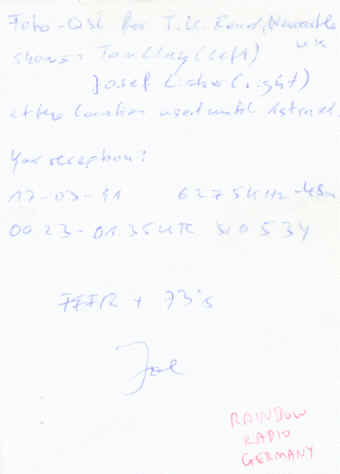 Foto-QSL for T.U. Round, Newcastle
UK
shows: Tom Clay (left)
Josef (right)
at the location used until
Your reception:
17-03-91 6275 KHz 48m
0023-0135 UTC 534
FFFR + 73's
Joe
RAINBOW
RADIO
GERMANY